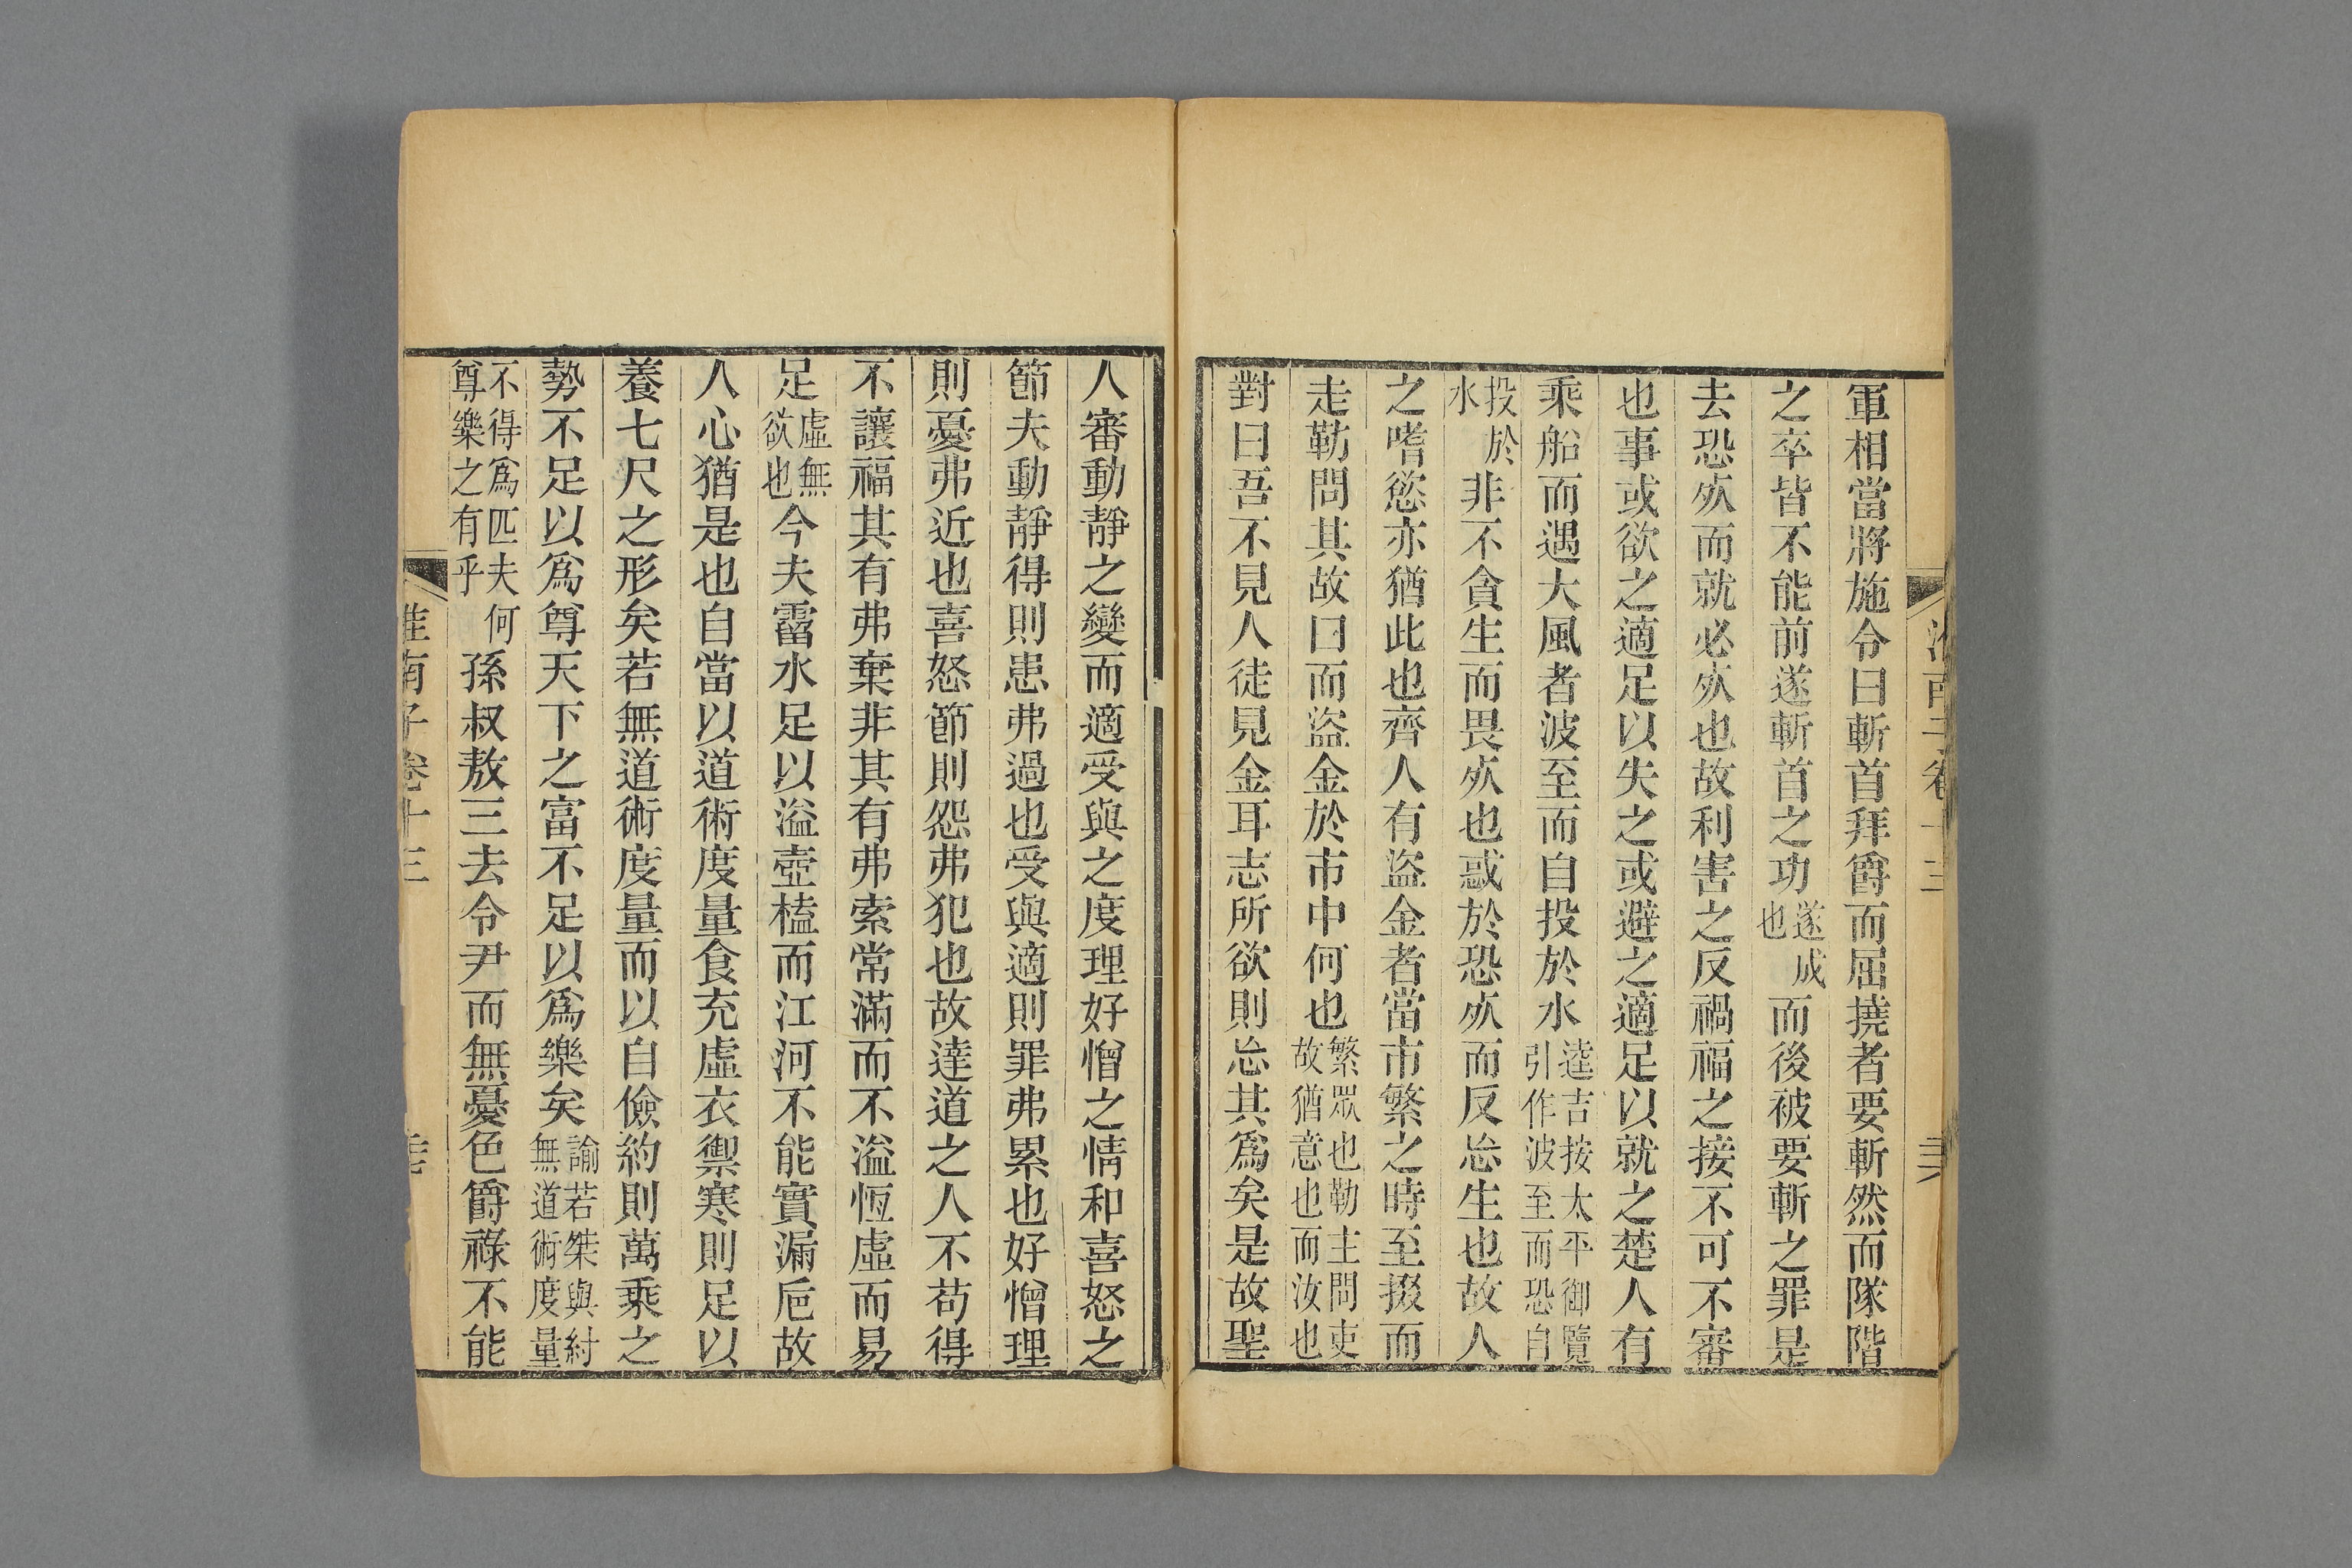 淮南子卷十三
軍相當將施令曰斬首拜爵而屈撓者要斬然而隊階
之卒皆不能前遂斬首之功遂成也而後被要斬之罪是
去恐㱙而就必㱙也故利害之反禍福之接不可不審
也事或欲之適足以失之或避之適足以就之楚人有
乘船而遇大風者波至而自投於水逵吉按太平御覽引作波至而恐自
投於水非不貪生而畏㱙也惑於恐㱙而反忘生也故人
之嗜慾亦猶此也齊人有盜金者當市繁之時至掇而
走勒問其故曰而盜金於市中何也繁眾也勒主問吏故猶意也而汝也
對曰吾不見人徒見金耳志所欲則忘其爲矣是故聖
人審動靜之變而適受與之度理好憎之情和喜怒之
節夫動靜得則患弗過也受與適則罪弗累也好憎理
則憂弗近也喜怒節則怨弗犯也故達道之人不苟得
不讓福其有弗棄非其有弗索常滿而不溢恆虛而易
足虛無欲也今夫霤水足以溢壺榼而江河不能實漏卮故
人心猶是也自當以道術度量食充虛衣禦寒則足以
養七尺之形矣若無道術度量而以自儉約則萬乘之
勢不足以爲尊天下之富不足以爲樂矣諭若桀與紂無道術度量
不得爲匹夫何尊樂之有乎孫叔敖三去令尹而無憂色爵祿不能
淮南子卷十三